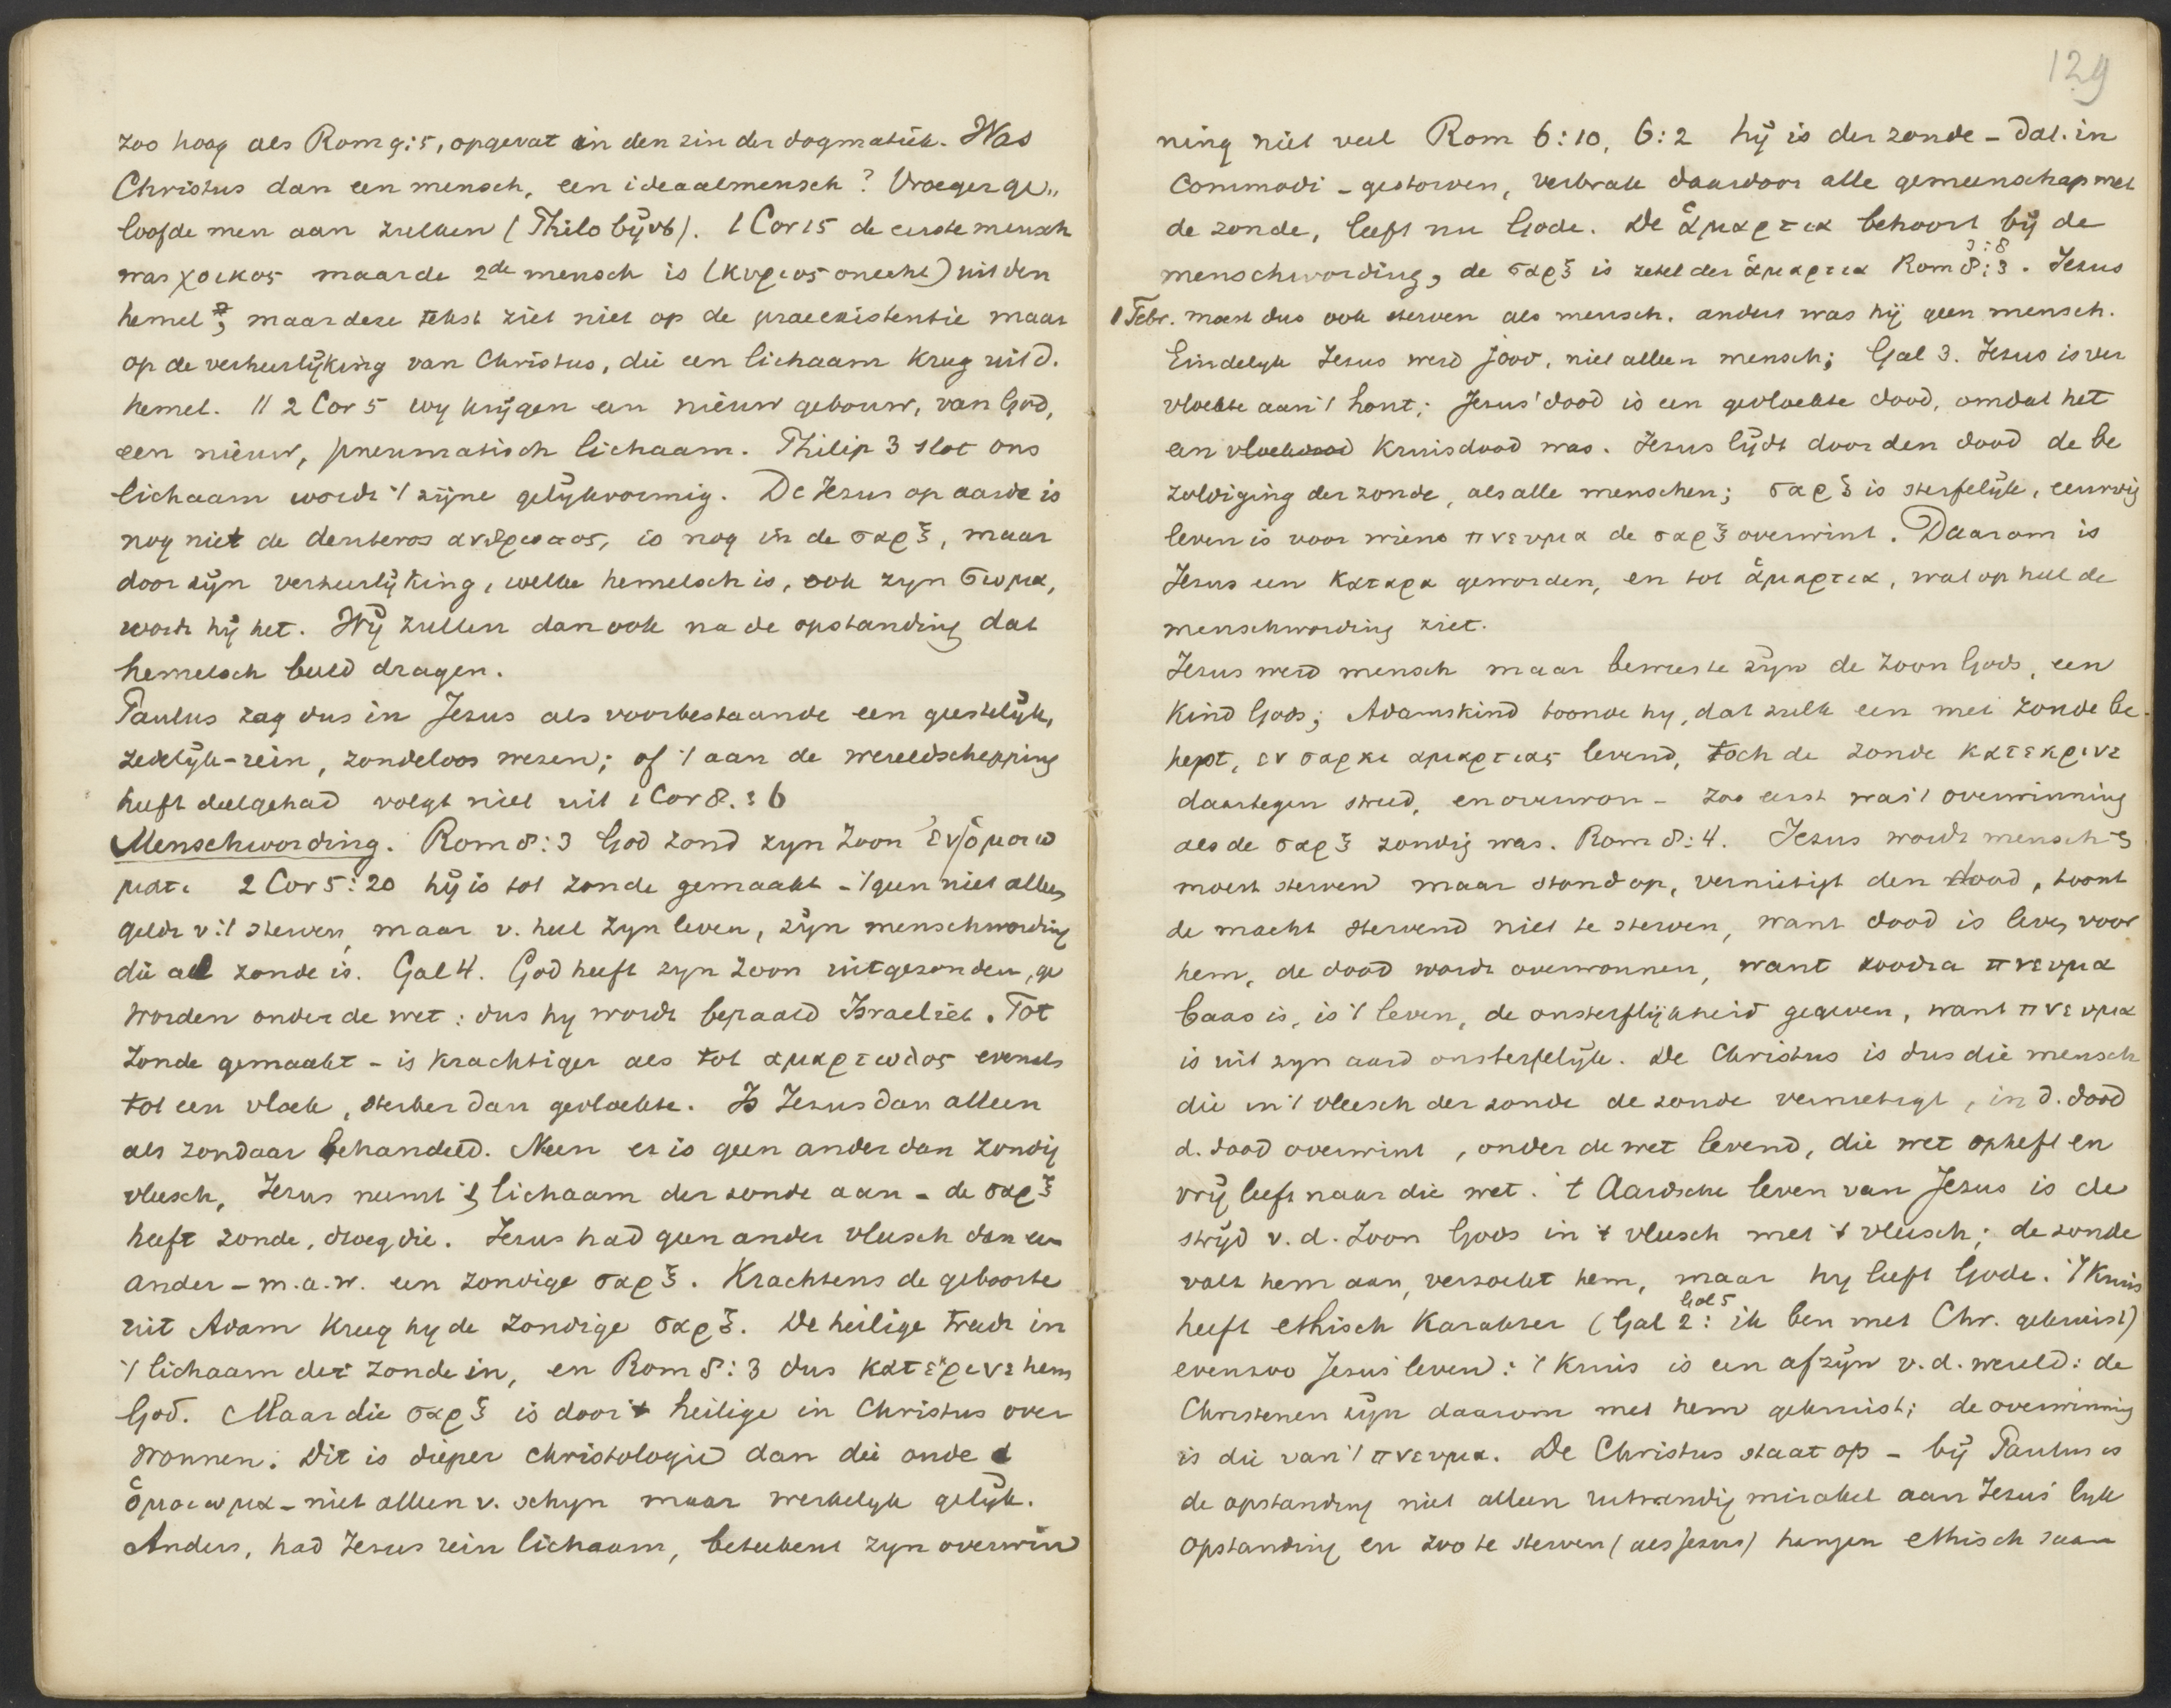 zoo hoog als Rom 9:5, opgevat in den zin der dogmatiek. Was
Christus dan een mensch, een ideaalmensch? Vroeger ge„
loofde men aan zulken (Philo bijvb). 1 Cor 15 de eerste mensch
was χοικος maar de 2de mensch is (κυριος onecht) uit den
hemel; maar deze tekst ziet niet op de praeexistentie maar
op de verheerlijking van Christus, die een lichaam kreeg uit d.
hemel. 11 2 Cor 5 wy krijgen een nieuw gebouw, van God,
een nieuw, pneumatisch lichaam. Philip 3 slot ons
lichaam wordt 't zijne gelijkvormig. De Jezus op aarde is
nog niet de deuteros ανθρωπος, is nog in de σαρξ, maar
door zijn verheerlijking, welke hemelsch is, ook zyn σωμα,
wordt hij het. Wij zullen dan ook na de opstanding dat
hemelsch beeld dragen.
Paulus zag dus in Jezus als voorbestaande een geestelijk,
zedelijk-rein, zondeloos wezen; of 't aan de wereldschepping
heeft deelgehad volgt niet uit 1 Cor 8.:6
Menschwording. Rom 8:3 God zond zyn Zoon ἐν ὁμοιω
ματι 2 Cor 5:20 hij is tot zonde gemaakt - 't geen niet alleen
geldt v 't sterven, maar v. heel zyn leven, zijn menschwording
die al zonde is. Gal 4. God heeft zyn Zoon uitgezonden, ge
worden onder de wet: dus hy wordt bepaald Israeliet. Tot
Zonde gemaakt - is krachtiger als tot αμαρτωλος evenals
tot een vloek, sterker dan gevloekte. Is Jezus dan alleen
als zondaar behandeld. Neen er is geen ander dan zondig
vleesch, Jezus neemt 't lichaam der zonde aan - de σαρξ
heeft zonde, droeg die. Jezus had geen ander vleesch dan een
ander - m.a.w. een zondige σαρξ. Krachtens de geboorte
uit Adam kreeg hy de zondige σαρξ. De heilige treedt in
't lichaam der zonde in, en Rom 8:3 dus κατεκρινε hem
God. Maar die σαρξ is door 't heilige in Christus over
wonnen. Dit is dieper christologie dan die oude
ὁμοιωμα - niet alleen v. schyn maar werkelyk gelijk.
Anders, had Jezus rein lichaam, beteekent zyn overwin
129
ning niet veel Rom 6:10, 6:2 hij is der zonde - dat. in
commodi - gestorven, verbrak daardoor alle gemeenschap met
de zonde, leeft nu Gode. De ἁμαρτια behoort bij de
menschwording, de σαρξ is zetel der ἁμαρτια Rom 8:3. Jezus
1 Febr. moest dus ook sterven als mensch. anders was hij geen mensch.
Eindelyk Jezus werd jood, niet alleen mensch; Gal 3. Jezus is ver
vloekte aan 't hout; Jezus' dood is een gevloekte dood, omdat het
een vloekdood kruisdood was. Jezus lijdt door den dood de be
zoldiging der zonde, als alle menschen; σαρξ is sterfelijk, eeuwig
leven is voor wiens πνευμα de σαρξ overwint. Daarom is
Jezus een καταρα geworden, en tot ἁμαρτια, wat op heel de
menschwording ziet.
Jezus werd mensch maar bewees te zijn de Zoon Gods, een
kind Gods; Adamskind toonde hy, dat zulk een met zonde be-
hept, εν σαρκι αμαρτιας levend, toch de zonde κατεκρινε
daartegen streed, en overwon - zoo eerst was 't overwinning
als de σαρξ zondig was. Rom 8:4. Jezus wordt mensch
moest sterven maar stond op, vernietigt den dood, toont
de macht stervend niet te sterven, want dood is leven voor
hem, de dood wordt overwonnen, want zoodra πνευμα
baas is, is 't leven, de onsterflijkheid gegeven, want πνευμα
is uit zyn aard onsterfelijk. De Christus is dus die mensch
die in 't vleesch der zonde de zonde vernietigt, in d. dood
d. dood overwint, onder de wet levend, die wet opheft en
vrij leeft naar die wet. 't Aardsche leven van Jezus is de
strijd v. d. Zoon Gods in 't vleesch met 't vleesch; de zonde
valt hem aan, verzoekt hem, maar hy leeft Gode. 't Kruis
heeft ethisch karakter (Gal 2: Gal 5 ik ben met Chr. gekruist)
evenzoo Jezus' leven: 't kruis is een afzijn v. d. wereld: de
Christenen zijn daarom met hem gekruist; de overwinning
is die van 't πνευμα. De Christus staat op - bij Paulus is
de opstanding niet alleen uitwendig mirakel aan Jezus' lyk
opstanding en zoo te sterven (als Jezus) hangen ethisch saam